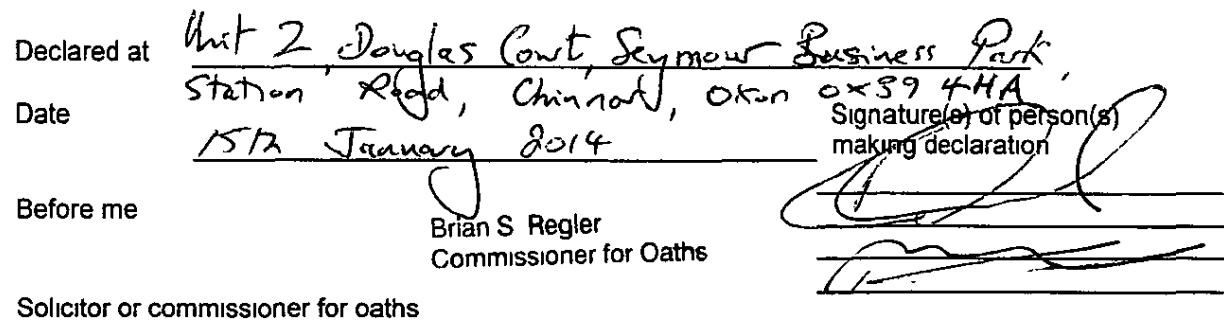 Declared at Unit 2, Douglas Court, Seymour Business Park,
Station Road, Chinnor, Oxon OX39 4HA
Date 15th January 2014
Signature(s) of person(s)
making declaration
Before me
Brian S Regler
Commissioner for Oaths
Solicitor or commissioner for oaths